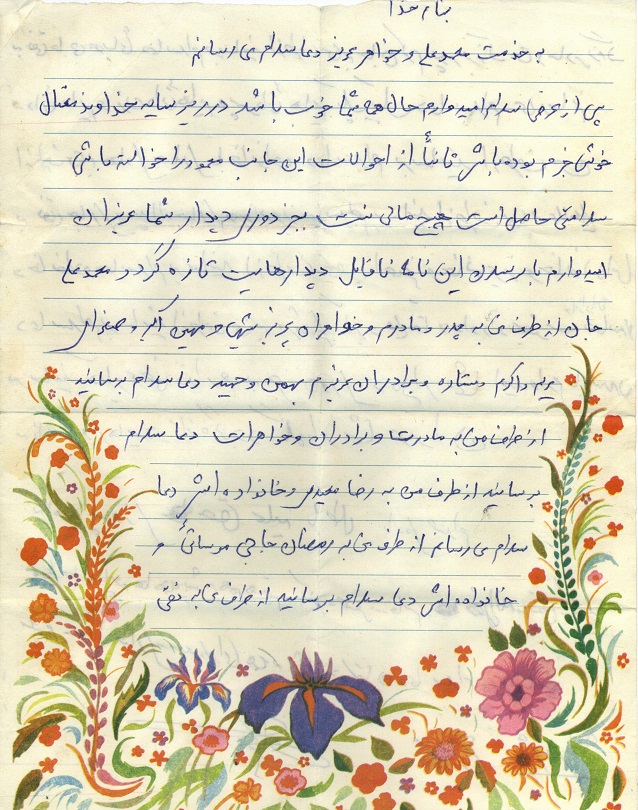 بنام خدا
به خدمت محمدعلی و خواهر عزیز دعا سلام می رسانم
پس از عرض سلام امیدوارم حال همه شما خوب باشد در زیر سایه خداوند متعال
خوش خرم بوده باش ثانیاً از احوالات این جانب محمود را خواسته باشی
سلامتی حاصل است هیچ ملالی نیست بجز دوری دیدار شما عزیزان
امیدوارم با رسیدن این نامه ناقابل دیدارهایت تازه گردد محمدعلی
جان از طرف من به پدر و مادرم و خواهران عزیز شهین و مهین اکبر و صغرا
عزیز و اکرم و ستاره و برادران عزیزم بهمن و حمید دعا سلام برسانید
از طرف من به مادرت و برادران و خواهرات دعا سلام
برسانید از طرف من به رضا مجیدی و خانواده اش دعا
سلام می رسانم از طرف من به رمضان حاجی و
خانواده اش دعا سلام برسانید از طرف من به تقی